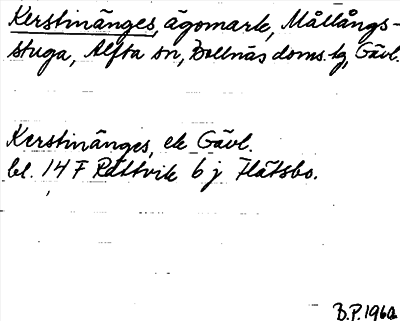 Kerstinänges, ägomark, Mållångs-
stuga, Alfta sn, Bollnäs doms.lg, Gävl.
Kerstinänges, ek Gävl.
bl. 14 F Rättvik 6 j Flätsbo.
B.P. 1960